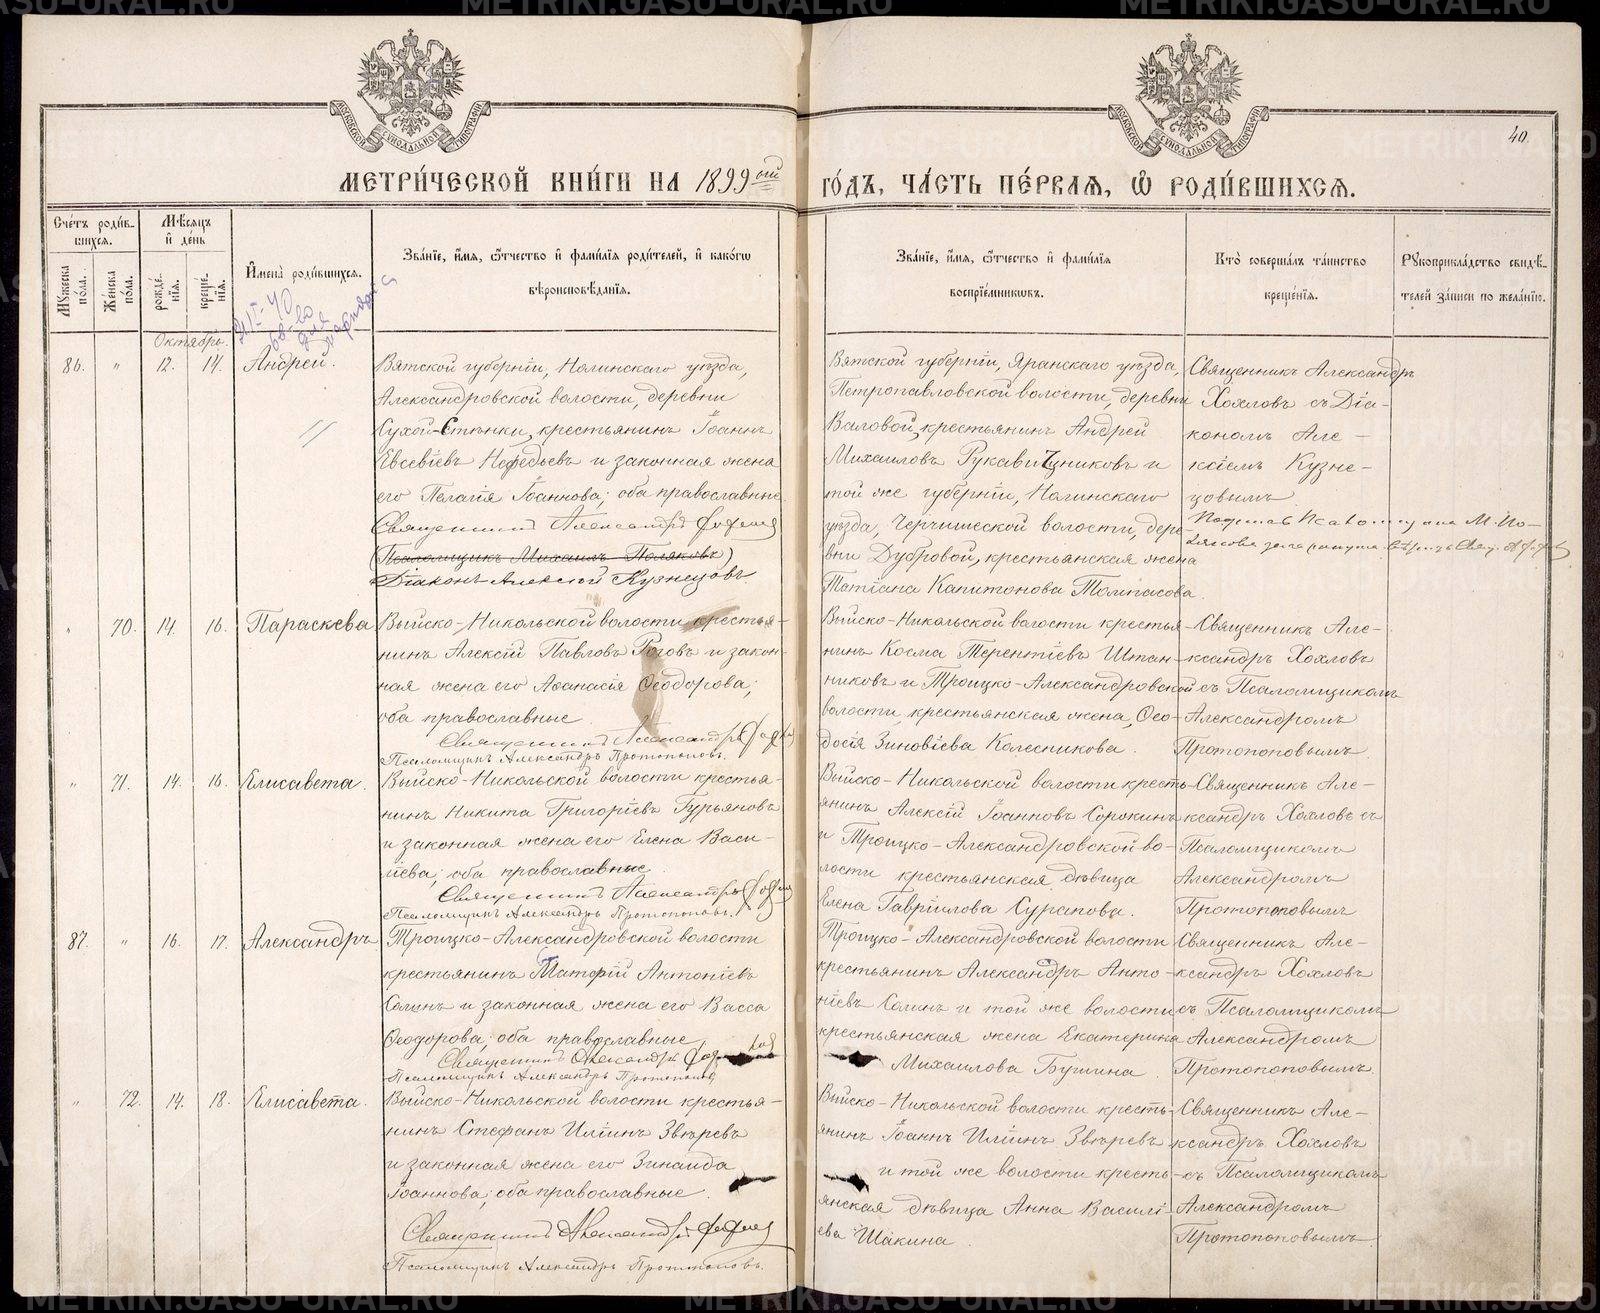 МЕТРИЧЕСКОЙ КНИГИ НА 1899ый ГОДЪ, ЧАСТЬ ПЕРВАЯ, Ѡ РОДИВШИХСЯ.
40.
МОСКОВСКОЙ СѴНОДАЛЬНОЙ ТИПОГРАФІИ
МОСКОВСКОЙ СѴНОДАЛЬНОЙ ТИПОГРАФІИ
Счетъ родив-
шихся.
Мужеска пола.
Женска пола.
Мѣсяцъ и день
рожде-нія.
креще-нія.
Имена родившихся.
Званіе, имя, ѿчество и фамилія родителей, и какогѡ
вѣроисповѣданія.
Званіе, имя, ѿчество и фамилія
воспріемникѡвъ.
Кто совершалъ таинство
крещенія.
Рукоприкладство свидѣ-
телей записи по желанію.
Октябрь.
86. " 12. 14. Андрей.
Вятской губерніи, Нолинскаго уѣзда,
Александровской волости, деревни
Сухой-Стѣнки, крестьянинъ Іоаннъ
Евсевіевъ Нефедьевъ и законная жена
его Пелагія Іоаннова; оба православные.
Священникъ Александръ
Псаломщикъ Михаилъ Поляковъ
Діаконъ Алексій Кузнецовъ
Вятской губерніи, Яранскаго уѣзда,
Петропавловской волости, деревни
Валовой, крестьянинъ Андрей
Михаиловъ Рукавичниковъ и
той же губерніи, Нолинскаго
уѣзда, волости, дере-
вни Дубровой, крестьянская жена
Татіана Капитонова
Священникъ Александръ
Хохловъ съ Діа-
кономъ Але-
ксіемъ Кузне-
цовымъ
" 70. 14. 16. Параскева
Выйско-Никольской волости крестья-
нинъ Алексій Павловъ Роговъ и закон-
ная жена его Аѳанасія Ѳеодорова;
оба православные.
Священникъ Александръ
Псаломщикъ Александръ Протопоповъ.
Выйско-Никольской волости крестья-
нинъ Косма Терентіевъ Штан-
никовъ и Троицко-Александровской
волости, крестьянская жена, Ѳео-
досія Зиновіева Колесникова.
Священникъ Але-
ксандръ Хохловъ
съ Псаломщикомъ
Александромъ
Протопоповымъ
" 71. 14. 16. Елисавета.
Выйско-Никольской волости крестья-
нинъ Никита Григоріевъ Гурьяновъ
и законная жена его Елена Васи-
ліева; оба православные.
Священникъ Александръ
Псаломщикъ Александръ Протопоповъ.
Выйско-Никольской волости кресть-
янинъ Алексій Іоанновъ Сорокинъ
и Троицко-Александровской во-
лости крестьянская дѣвица
Елена Гавріилова Сурапова.
Священникъ Але-
ксандръ Хохловъ съ
Псаломщикомъ
Александромъ
Протопоповымъ
87. " 16. 17. Александръ.
Троицко-Александровской волости
крестьянинъ Антоніевъ
Солинъ и законная жена его Васса
Ѳеодорова; оба православные
Священникъ Александръ
Псаломщикъ Александръ Протопоповъ
Троицко-Александровской волости
крестьянинъ Александръ Анто-
ніевъ Солинъ и той же волости
крестьянская жена Екатерина
Михаилова Бушина.
Священникъ Але-
ксандръ Хохловъ
съ Псаломщикомъ
Александромъ
Протопоповымъ.
" 72. 14. 18. Елисавета.
Выйско-Никольской волости крестья-
нинъ Стефанъ Иліинъ Звѣревъ
и законная жена его Зинаида
Іоаннова; оба православные.
Священникъ Александръ
Псаломщикъ Александръ Протопоповъ.
Выйско-Никольской волости кресть-
янинъ Іоаннъ Иліинъ Звѣревъ
и той же волости кресть-
янская дѣвица Анна Василі-
ева Шакина.
Священникъ Але-
ксандръ Хохловъ
съ Псаломщикомъ
Александромъ
Протопоповымъ
METRIKI.GASU-URAL.RU